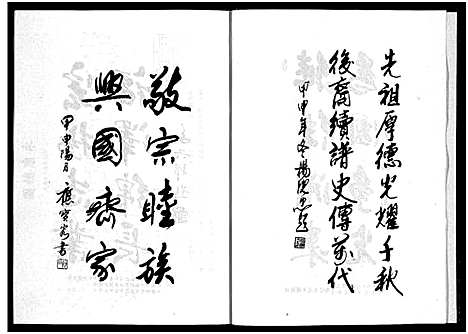 先祖厚德光耀千秋
後裔續譜史傳萬代
甲申年冬楊
敬宗睦族
興國齊家
甲申陽月